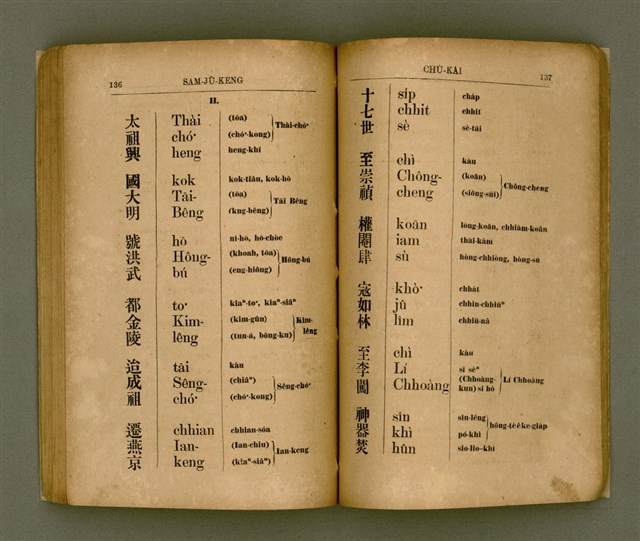 136 SAM-JŪ-KENG
II.
太 Thài (tōa)
祖 chó͘ (chó͘-kong) Thài-chó͘
興 heng heng-khí
國 kok kok-tiâu, kok-hō
大 Tāi- (tōa)
明 Bêng (kng-bêng) Tāi Bêng
號 hō nî-hō, hō-chòe
洪 Hông- (khoah, tōa)
武 bú (eng-hiông) Hông-bú
都 to͘ kiaⁿ-to͘, kiaⁿ-siâⁿ
金 Kim- (kim-gûn)
陵 lêng (tun-á, bōng-ku) Kim-lêng
迨 tāi kàu
成 Sêng- (chiâⁿ)
祖 chó͘ (chó͘-kong) Sêng-chó͘
遷 chhian chhian-sóa
燕 Ian- (Ian-chiu)
京 keng (kiaⁿ-siâⁿ) Ian-keng
CHÙ-KÁI 137
十 si̍p cha̍p
七 chhit chhit
世 sè sè-tāi
至 chì kàu
崇 Chông- (koân)
禎 cheng (siông-sūi) Chông-cheng
權 koân lōng-koân, chhiàm-koân
閹 iam thài-kàm
肆 sù hòng-chhiòng, hòng-sù
寇 khò͘ chha̍t
如 jû chhin-chhiūⁿ
林 lîm chhiū-nâ
至 chì kàu
李 Lí sì sèⁿ
闖 Chhoàng (Chhoàng-kun) sī hō Lí Chhoàng
神 sîn sîn-lêng
器 khì pó-khì hông-tè ê ke-giáp
焚 hûn sio-lio--khì